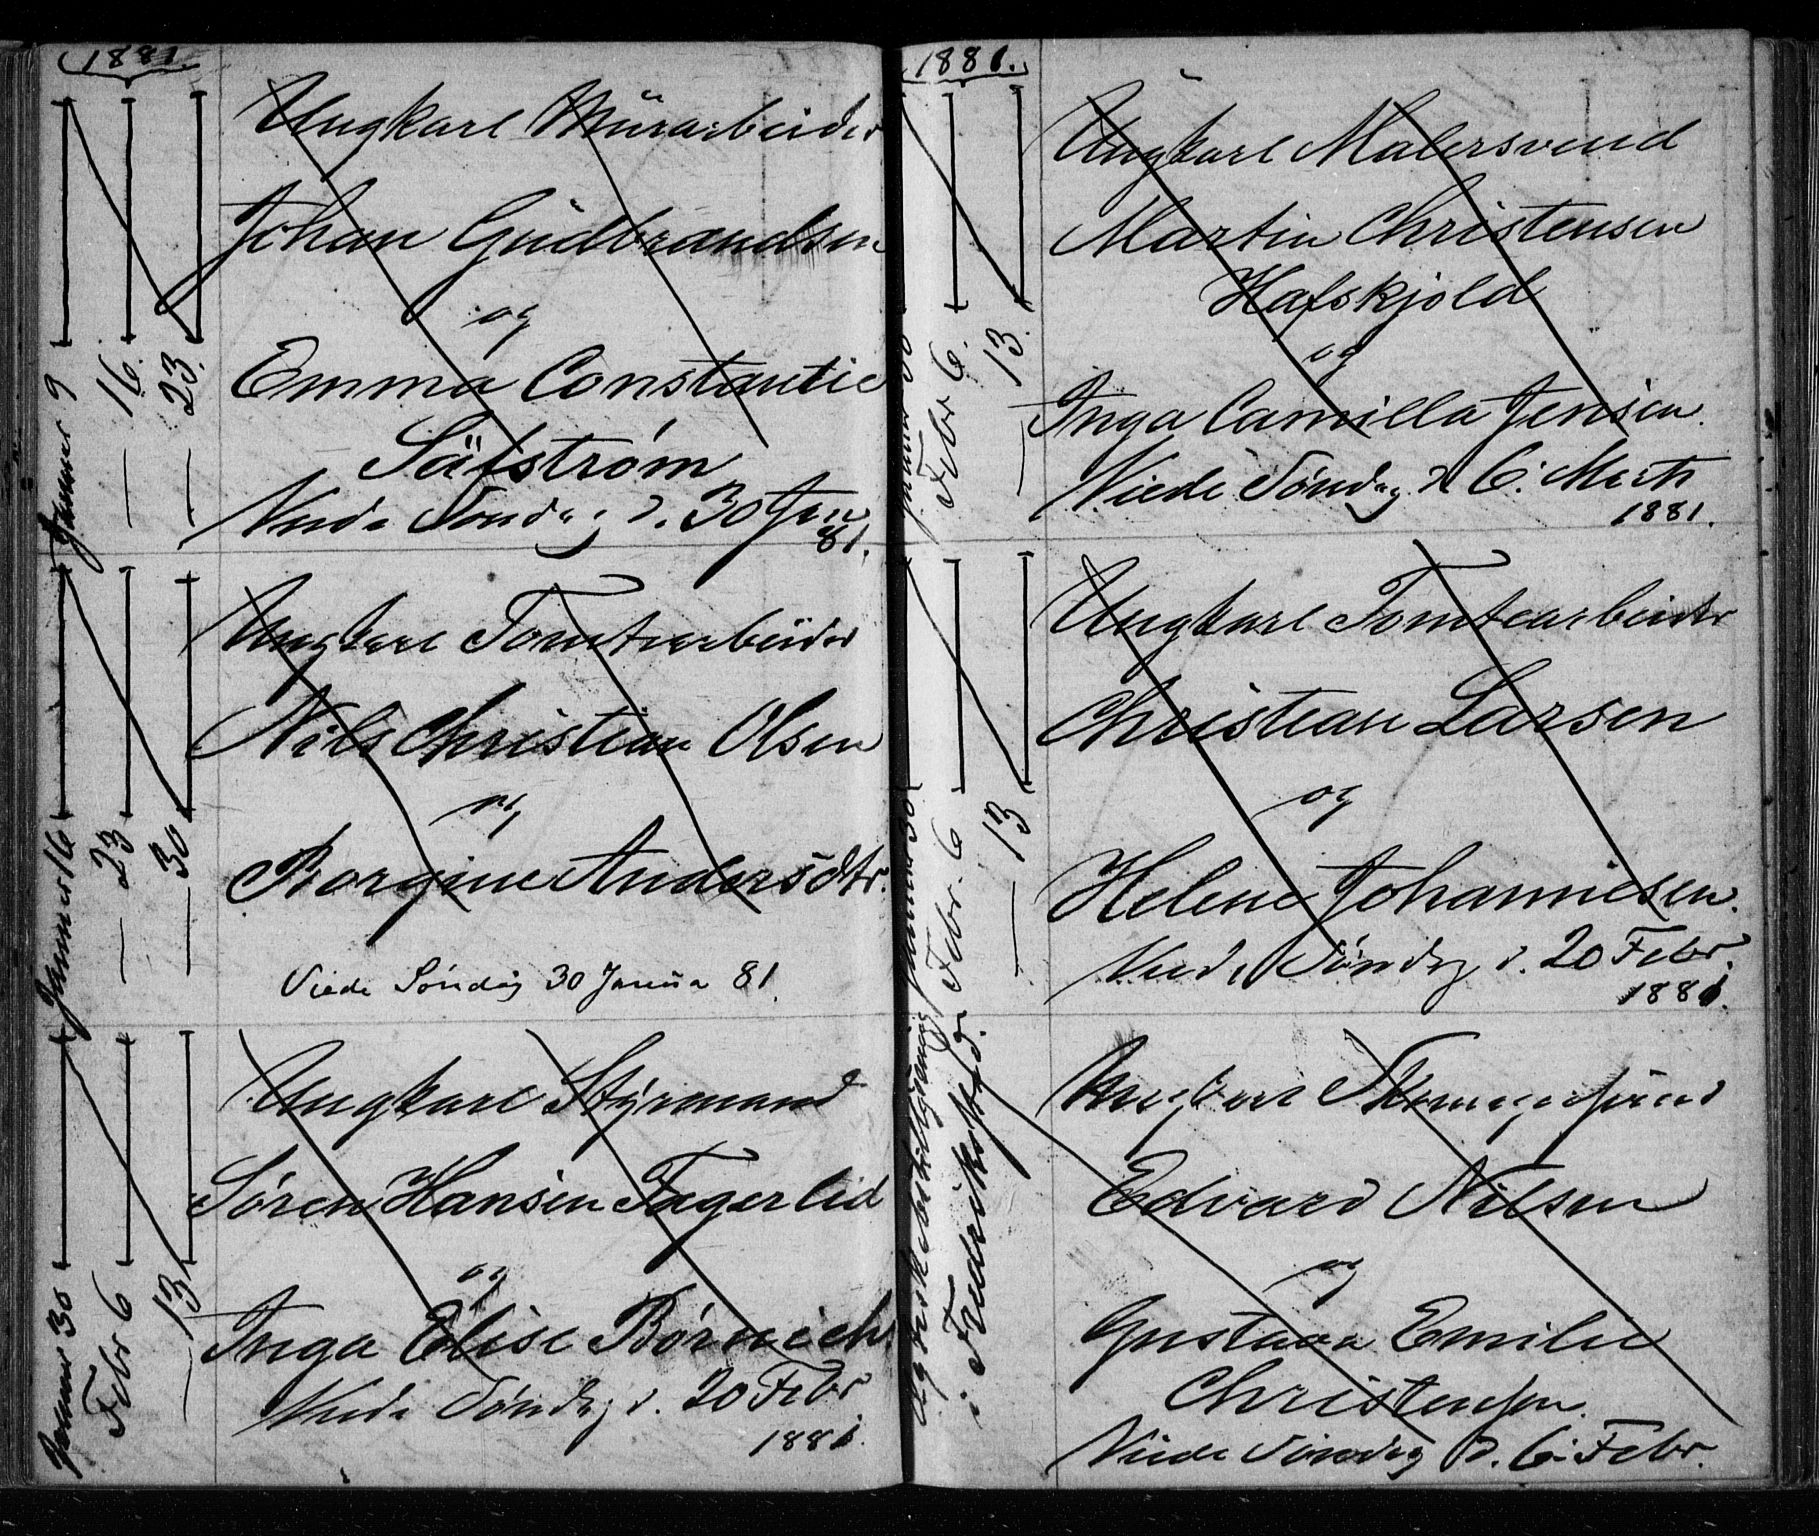 1881.
Ungkarl Mürarbeider
Johan Gudbrandsen
og
Emma Constantie
Säfström
Viede Søndag d. 30 Jan
81.
Januar 9
— 16.
— 23.
Ungkarl Tomtearbeider
Nils Christian Olsen
og
Borgine Andersdtr.
Viede Søndag 30 Janua 81.
Januar 16
— 23
— 30
Ungkarl Styrmand
Søren Hansen Fagerlid
og
Inga Elise Børnich.
Viede Søndag d. 20 Febr
1881.
Januar 30
Febr 6
— 13
1881.
Ungkarl Malersvend
Martin Christensen
Hafskjold
og
Inga Camilla Jensen.
Viede Søndag d 6. Marts
1881.
Januar 30
Febr 6.
— 13.
Ungkarl Tomtearbeider
Christian Larsen
og
Helene Johannesen.
Viede Søndag d. 20 Febr.
1881.
Januar 30
Febr. 6
— 13
Ungkarl
Edvard Nilsen
og
Gustava Emilie
Christensen.
Viede Søndag d. 6. Febr.
i Fredriksstad.